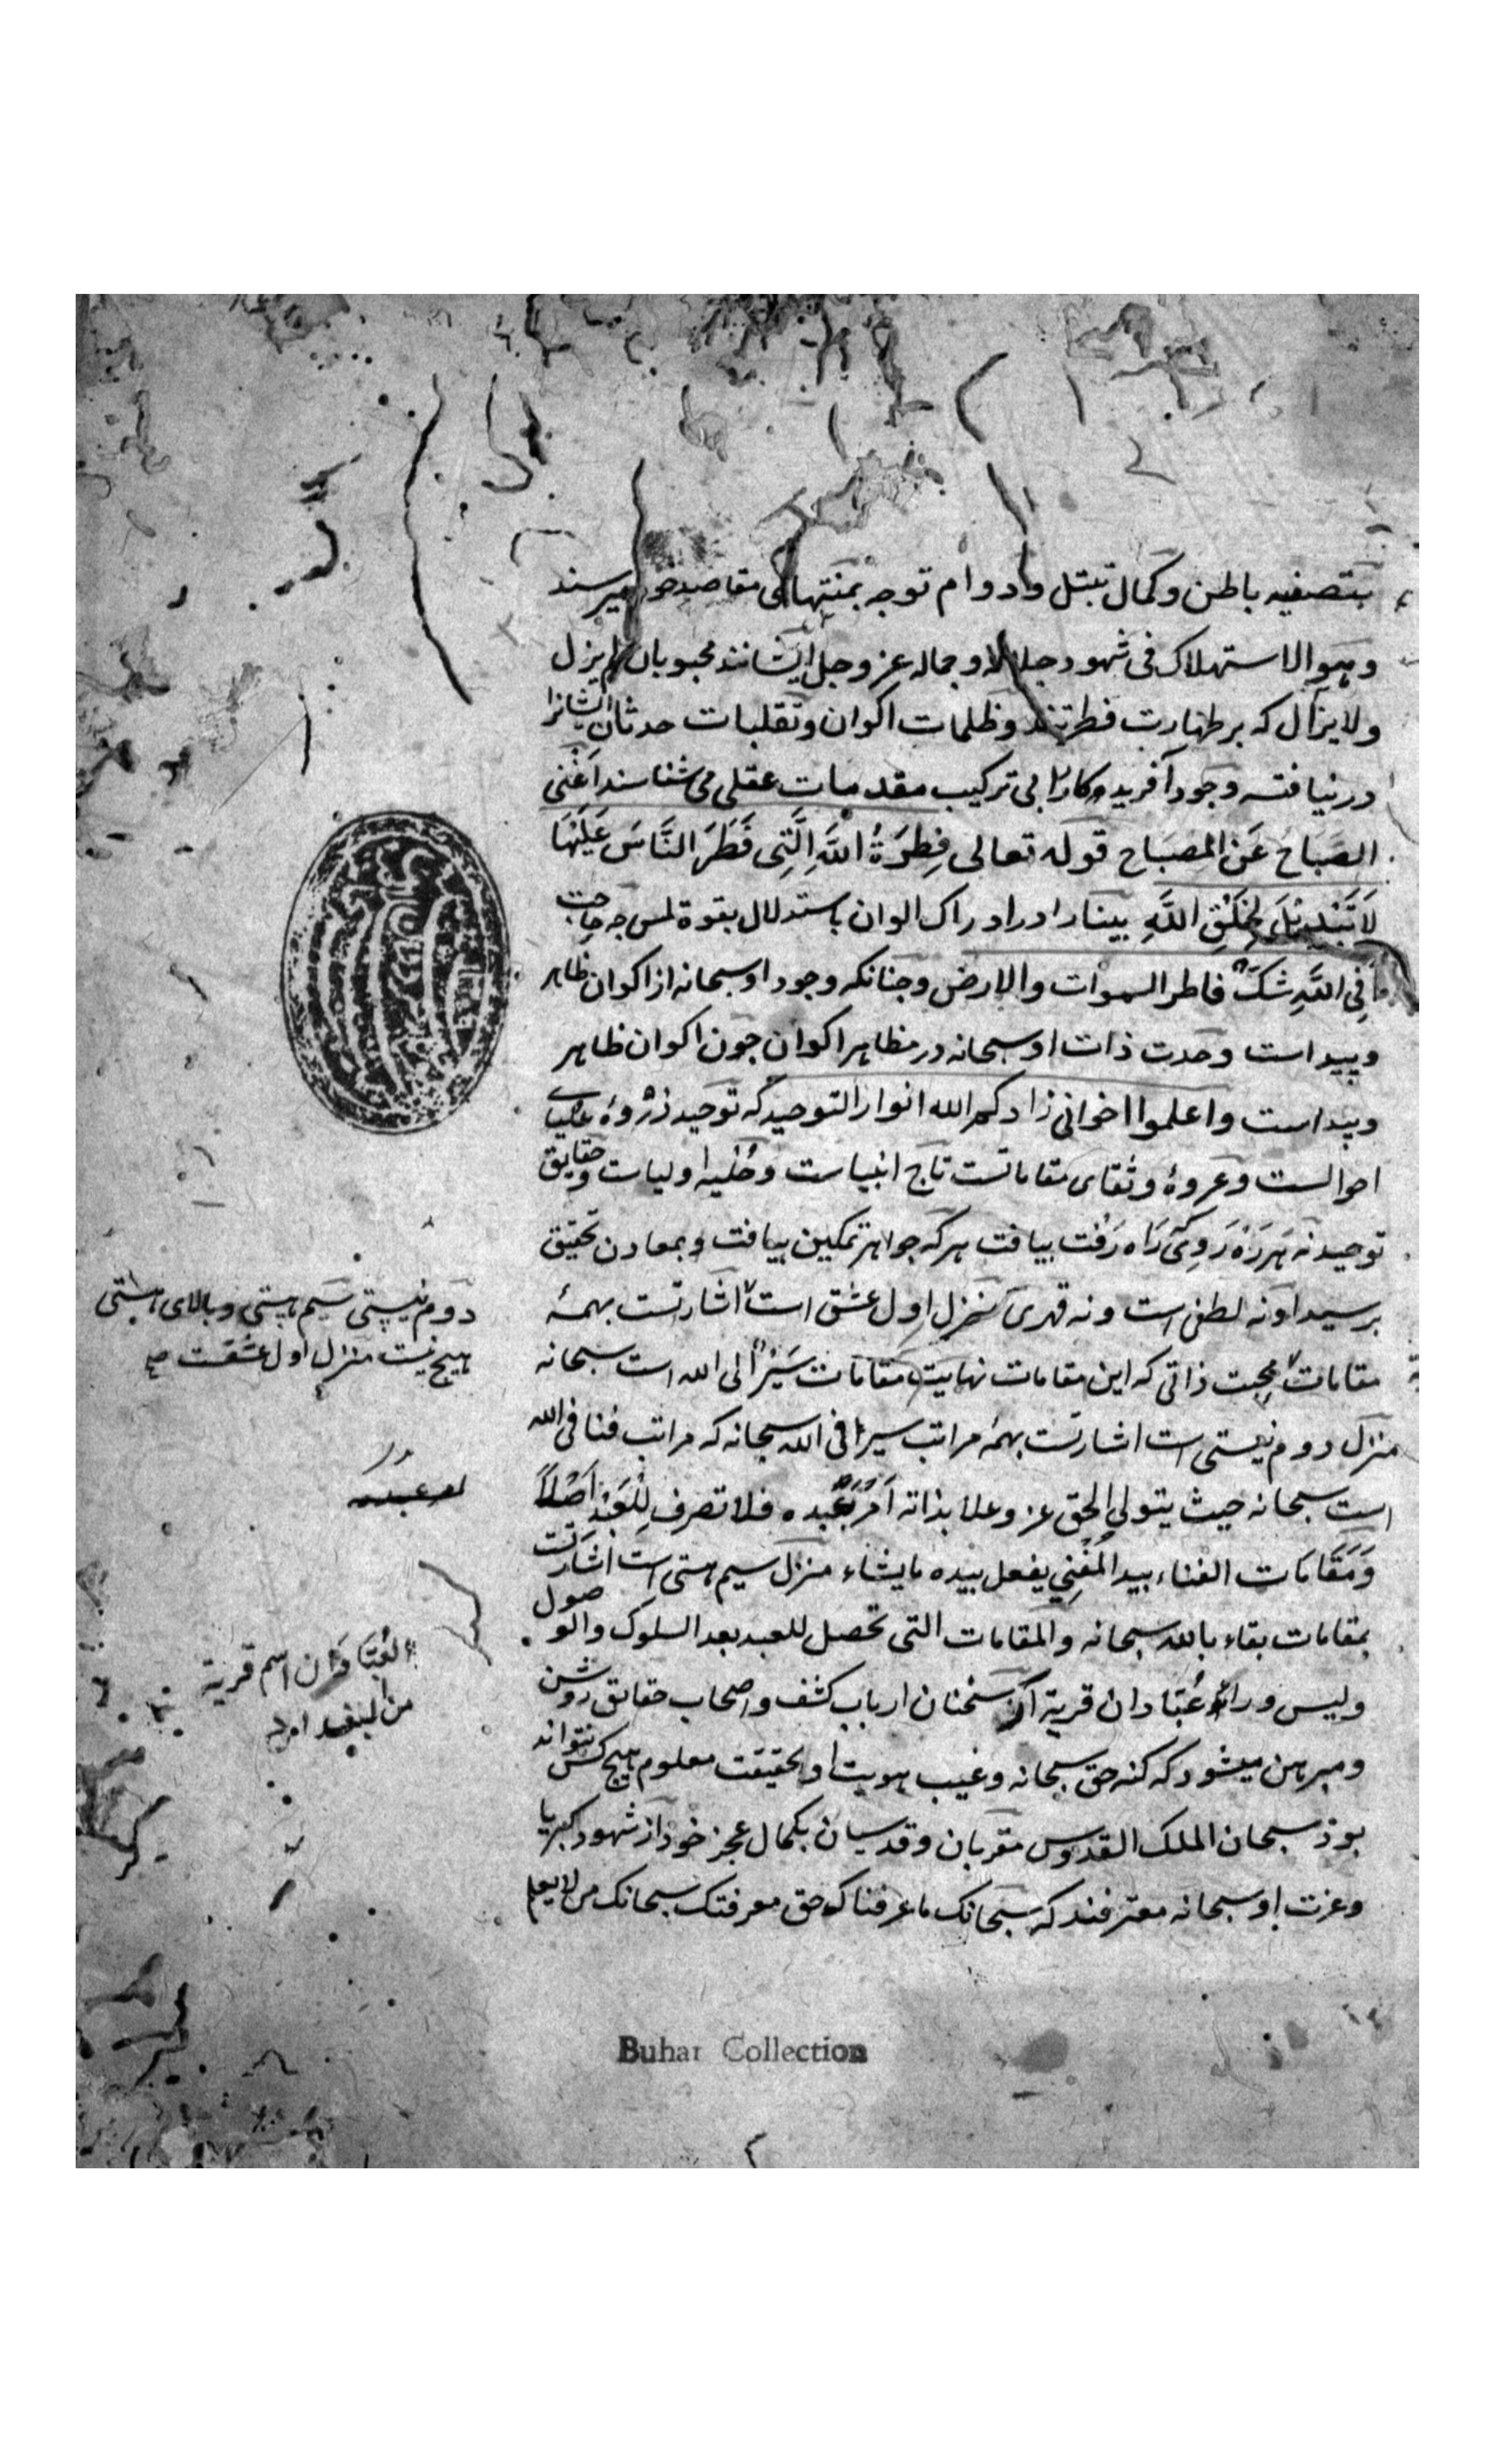 بتصفیه باطن و کمال تبتل و دوام توجه بمنتهای مقاصد خود میرسند
و هو الاستهلاک فی شهود جلاله و جماله عز و جل ایشانند محبوبان لم یزل
و لایزال که بر طهارت فطرتند و ظلمات اکوان و تقلبات حدثان ایشانرا
در نیافته وجود آفریدکار را بی ترکیب مقدمات عقلی می شناسند اَغْنَی
الصَّبَاحُ عَنِ المِصْبَاحِ قوله تعالی فِطرَةُ اللّهِ الَّتِی فَطَرَ النَّاسَ عَلَیْهَا
لَا تَبْدِیْلَ لِخَلْقِ اللَّهِ بینا را در ادراک الوان باستدلال بقوة لمس چه حاجت
اَفِی اللّهِ شَکّ فاطر السموات والارض و چنانکه وجود او سبحانه از اکوان ظاهر
و پیداست وحدت ذات او سبحانه در مظاهر اکوان چون اکوان ظاهر
و پیداست و اعلموا اخوانی زادکم الله انوار التوحید که توحید ذروهٔ علیای
احوالست و عروهٔ وثقای مقاماتست تاج انبیاست و حُلیه اولیاست و حقایق
توحید نه هَر رَه رَوی که رَاه رَفت بیافت هر که جواهر تمکین بیافت و بمعادن تحقیق
برسید او نه لطفی است و نه قهری منزل اول عشق است اشارتست بهمهٔ
مقامات محبت ذاتی که این مقامات نهایت مقامات سَیْر الی الله است سبحانه
منزل دوم نیستی است اشارتست بهمه مراتب سیر فی الله سبحانه که مراتب فنا فی الله
است سبحانه حیث یتولی الحق عز و علا بذاته اَمْرَ عَبْده فلا تصرف لِلْعَبْدِ اَصْلاً
وَمَقَامَات الفناء بید المُفْنِی یفعل بیده ما یشاء منزل سیم هستی است اشارتست
بمقامات بقاء بالله سبحانه والمقامات التی تحصل للعبد بعد السلوک والوصول
ولیس وراء عَبّادان قریة از سخنان ارباب کشف و اصحاب حقایق روشن
و مبرهن میشود که کنه حق سبحانه و غیب هویت او بحقیقت معلوم هیچ کس نتواند
بود سبحان الملک القدوس مقربان و قدسیان بکمال عجز خود از شهود کبریا
و عزت او سبحانه معترفند که سبحانک ما عرفناک حق معرفتک سبحانک من لا یعلم
دوم نیستی سیم هستی و بالای هستی
هیچ نیست منزل اول عشقست
العَبّادان اسم قریة
Buhar Collection
۲